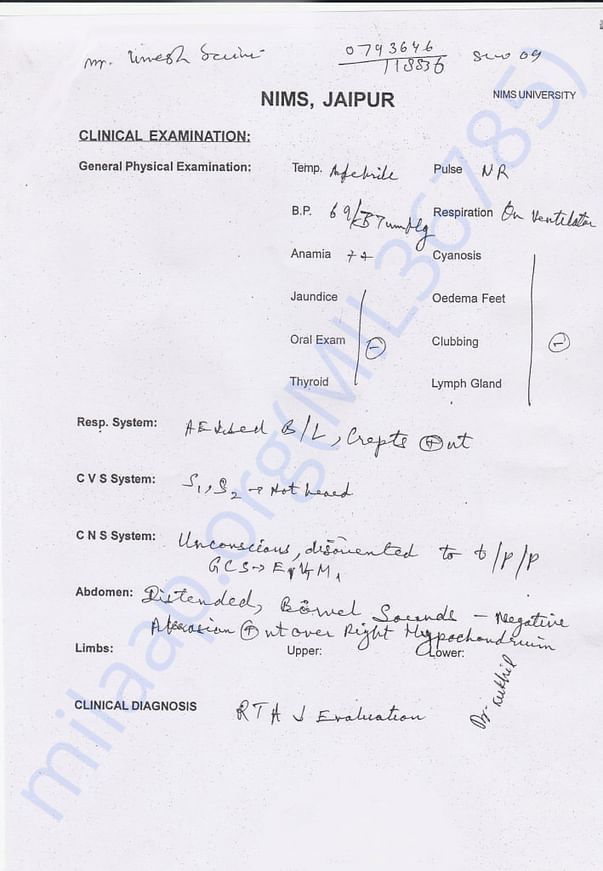 Mr. Umesh Saini 0793646 / 118836 SICU 09
NIMS, JAIPUR NIMS UNIVERSITY
CLINICAL EXAMINATION:
General Physical Examination: Temp. Afebrile Pulse NR
B.P. 69/37mmHg Respiration On Ventilator
Anamia ++ Cyanosis
Jaundice Oedema Feet
Oral Exam ⊖ Clubbing ⊖
Thyroid Lymph Gland
Resp. System: AE B/L, Crepts ⊕nt
C V S System: S1, S2 → Not heard
C N S System: Unconscious, disoriented to t/p/p
GCS →
Abdomen: Distended, Bowel Sounds - Negative
Abrasion ⊕nt over Right Hypochondrium
Limbs: Upper: Lower:
CLINICAL DIAGNOSIS RTA ↓ Evaluation
Dr.
milaap.org(MIL36785)